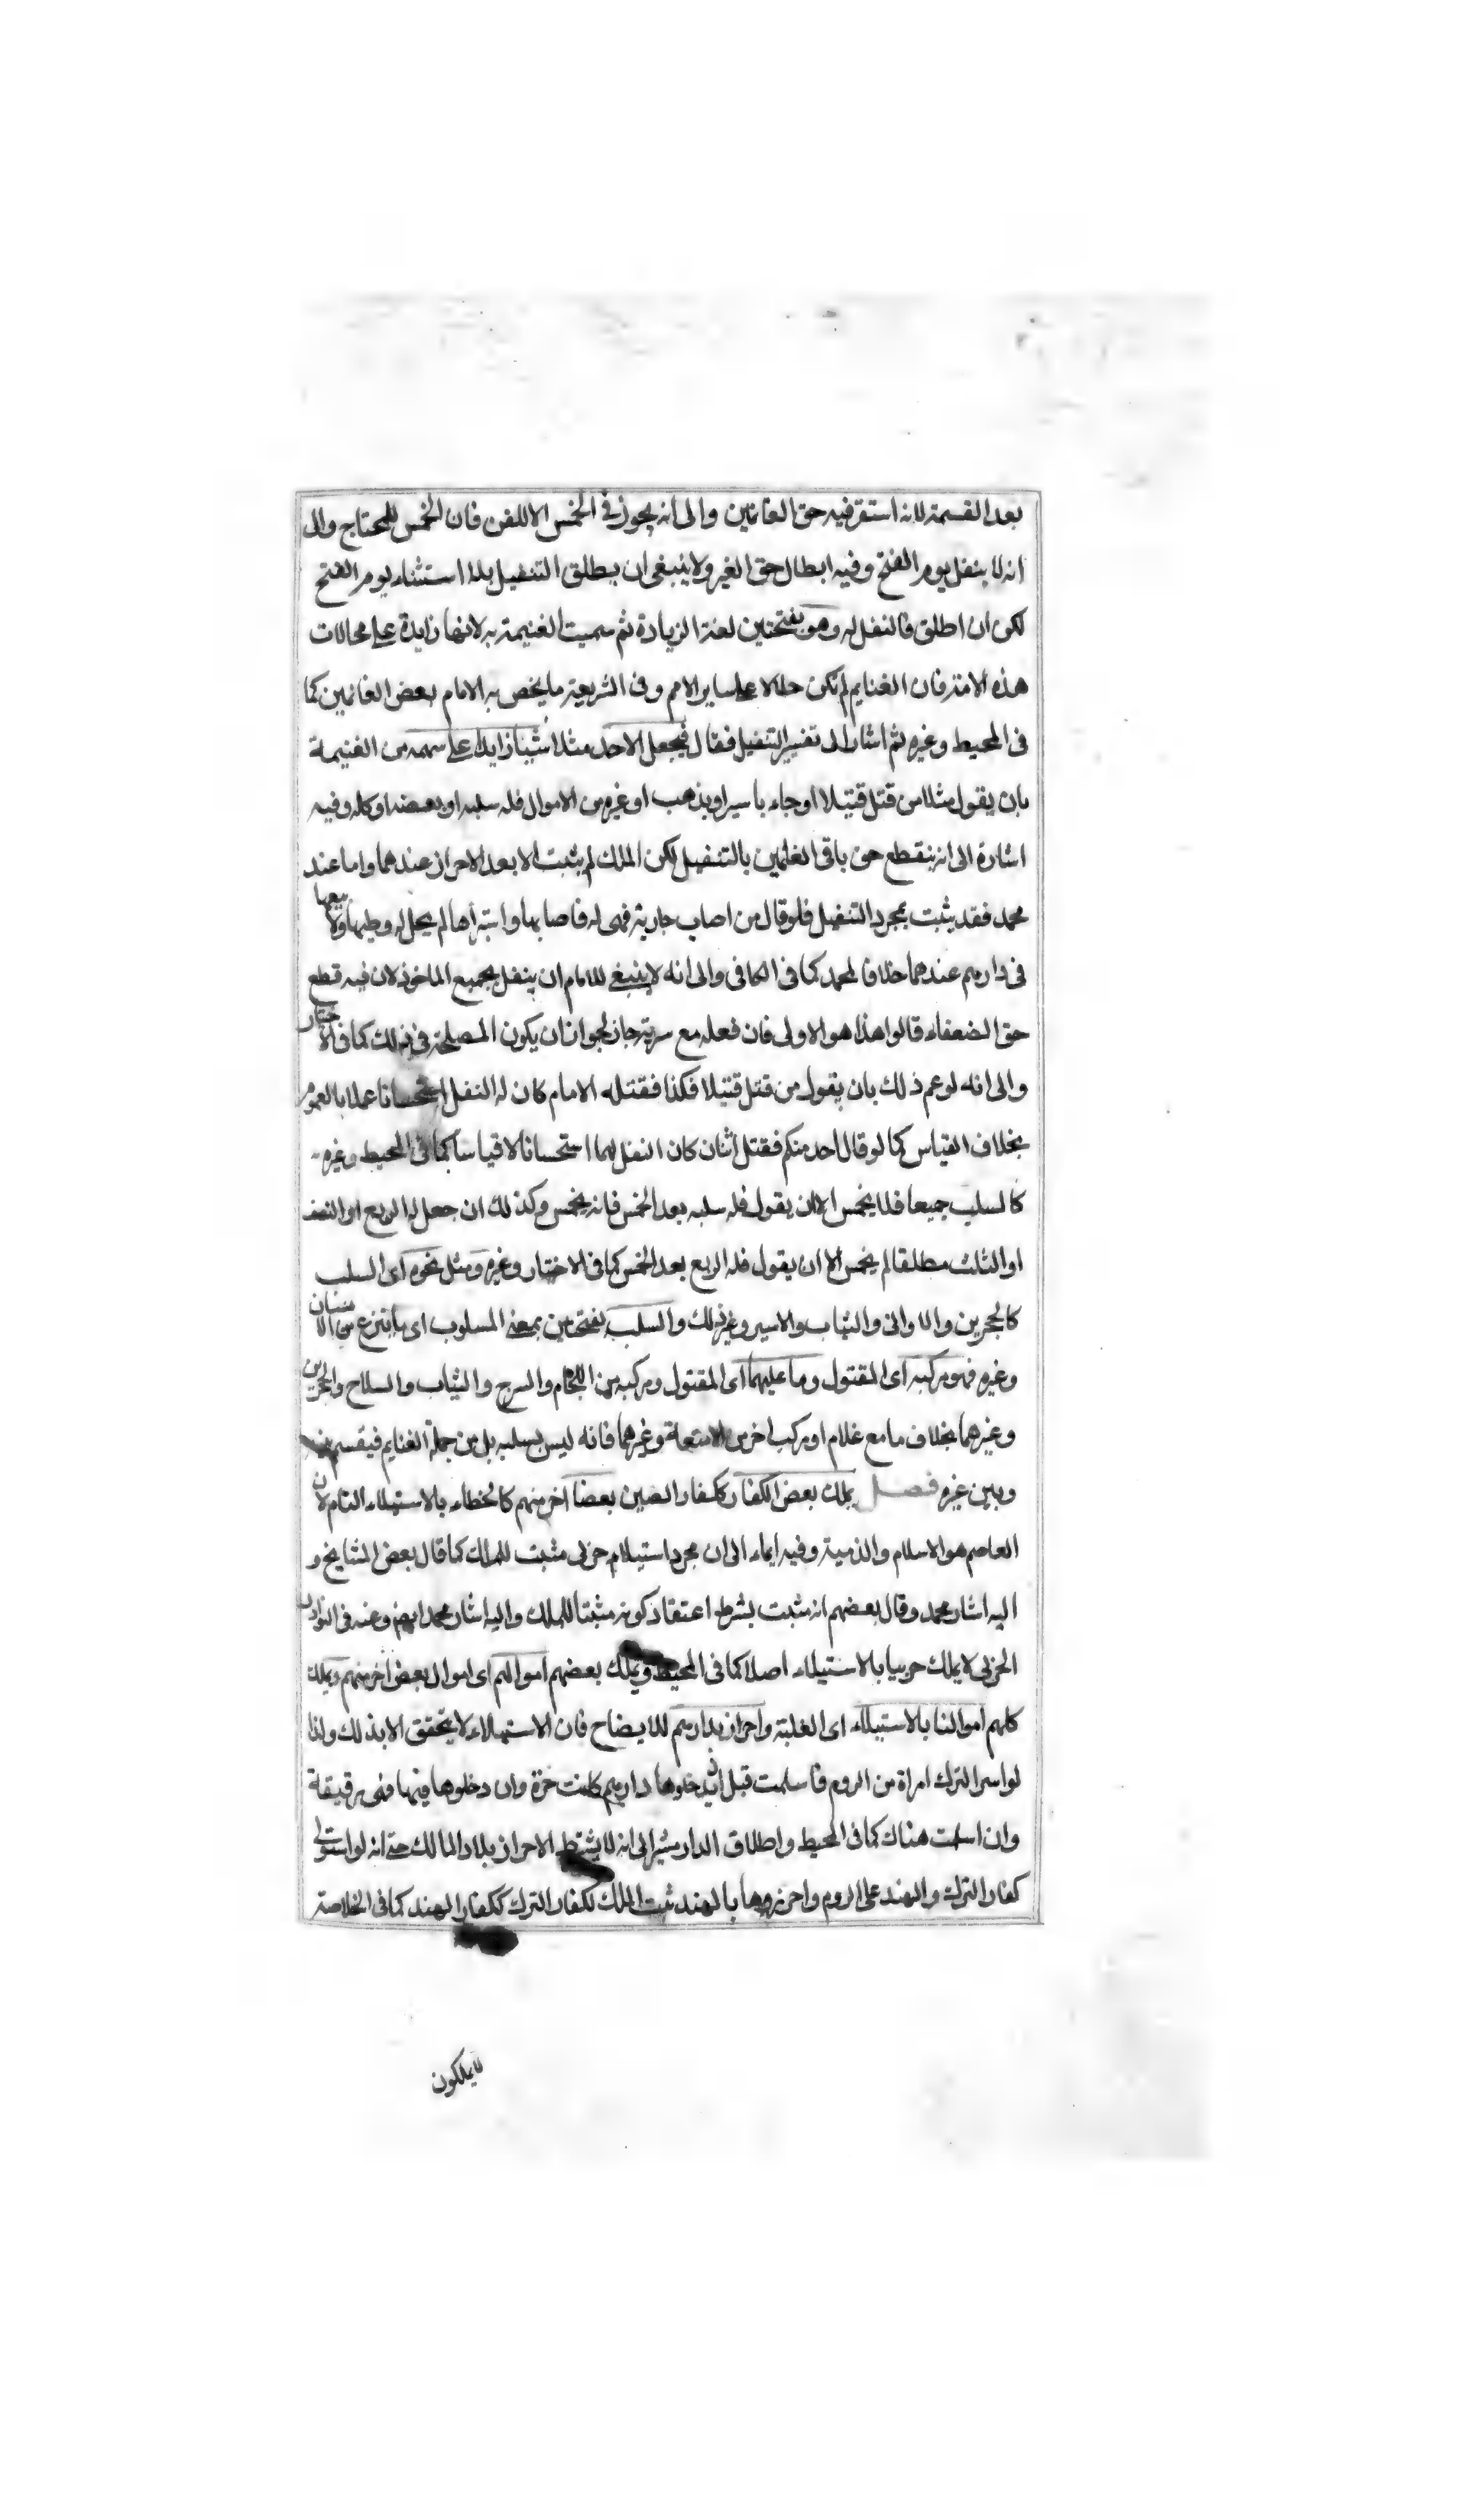 بعد القسمة لانه استقر فيه حق الغانمين والى انه يجوز فى الخمس الا للغنى فان الخمس للمحتاج والى
انه لا ينفل يوم الفتح وفيه ابطال حق الغير ولا ينبغى ان يطلق التنفيل بلا استثناء يوم الفتح
لكن ان اطلق فالنفل له وهو بفتحتين لغة الزيادة ثم سميت الغنيمة به لانها زايدة على محالات
هذه الامة فان الغنايم لم تكن حلالا على ساير الامم وفى الشريعة ما يخص به الامام بعض الغانمين كما
فى المحيط وغيره ثم اشار الى تفسير التنفيل فقال فيجعل لاحد مثلا شيئا زايدا على سهمه من الغنيمة
بان يقول مثلا من قتل قتيلا او جاء باسير او بذهب او غيره من الاموال فله سلبه او بعضه او كله وفيه
اشارة الى انه ينقطع حق باقى الغانمين بالتنفيل لكن الملك لم يثبت الا بعد الاحراز عندهما واما عند
محمد فقد يثبت بمجرد التنفيل فلو قال من اصاب جارية فهى له فاصابها واستبرأها لم يحل له وطيها ولا بيعها
فى دارهم عندهما خلافا لمحمد كما فى الكافى والى انه لا ينبغى للامام ان ينفل بجميع الماخوذ لان فيه قطع
حق الضعفاء قالوا هذا هو الاولى فان فعله مع سرية جاز لجواز ان يكون المصلحة فى ذلك كما فى الاختيار
والى انه لو عم ذلك بان يقول من قتل قتيلا فكذا فقتله الامام كان له النفل استحسانا عملا بالعموم
بخلاف القياس كما لو قال احد منكم فقتل اثنان كان النفل لهما استحسانا لا قياسا كما فى المحيط وغيره
كالسلب جميعا فلا يخمس الا ان يقول فله سلبه بعد الخمس فانه يخمس وكذلك ان جعل له الربع او النصف
او الثلث مطلقا لم يخمس الا ان يقول فله الربع بعد الخمس كما فى الاختيار وغيره ومثل نحوه اى السلب
كالحجرين والاوانى والثياب والاسير وغير ذلك والسلب بفتحتين بمعنى المسلوب اى ما ينتزع من الانسان
وغيره فهو مركبه اى المقتول وما عليهما اى المقتول ومركبه من اللجام والسرج والثياب والسلاح والحجرين
وغيرهما بخلاف ما مع غلام او مركب اخر من الامتعة وغيرهما فانه ليس بسلبه بل من جملة الغنايم فيقسم بينه
وبين غيره فصل يملك بعض الكفار ككفار الصين بعضا اخر منهم كالخطاء بالاستيلاء التام لان
العاصم هو الاسلام والذمية وفيه ايماء الى ان مجرد استيلاء حربى مثبت للملك كما قال بعض المشايخ و
اليه اشار محمد وقال بعضهم انه مثبت بشرط اعتقاد كونه مثبتا للملك واليه اشار محمد ايضا وعنه فى النوادر
الحربى لا يملك حربيا بالاستيلاء اصلا كما فى المحيط ويملك بعضهم اموالهم اى اموال بعض اخر منهم ويملك
كلهم اموالنا بالاستيلاء اى الغلبة واحراز بدارهم للايضاح فان الاستيلاء لا يتحقق الا بذلك ولذا
لو اسر الترك امراة من الروم فاسلمت قبل ان يدخلوها دارهم كانت حرة وان دخلوها فيها فهى رقيقة
وان اسلمت هناك كما فى المحيط واطلاق الدار مشير الى انه لا يشترط الاحراز بلاد المالك حتى انه لو استولى
كفار الترك والهند على الروم واحرزوها بالهند ثبت الملك لكفار الترك ككفار الهند كما فى الخلاصة
لا يملكون